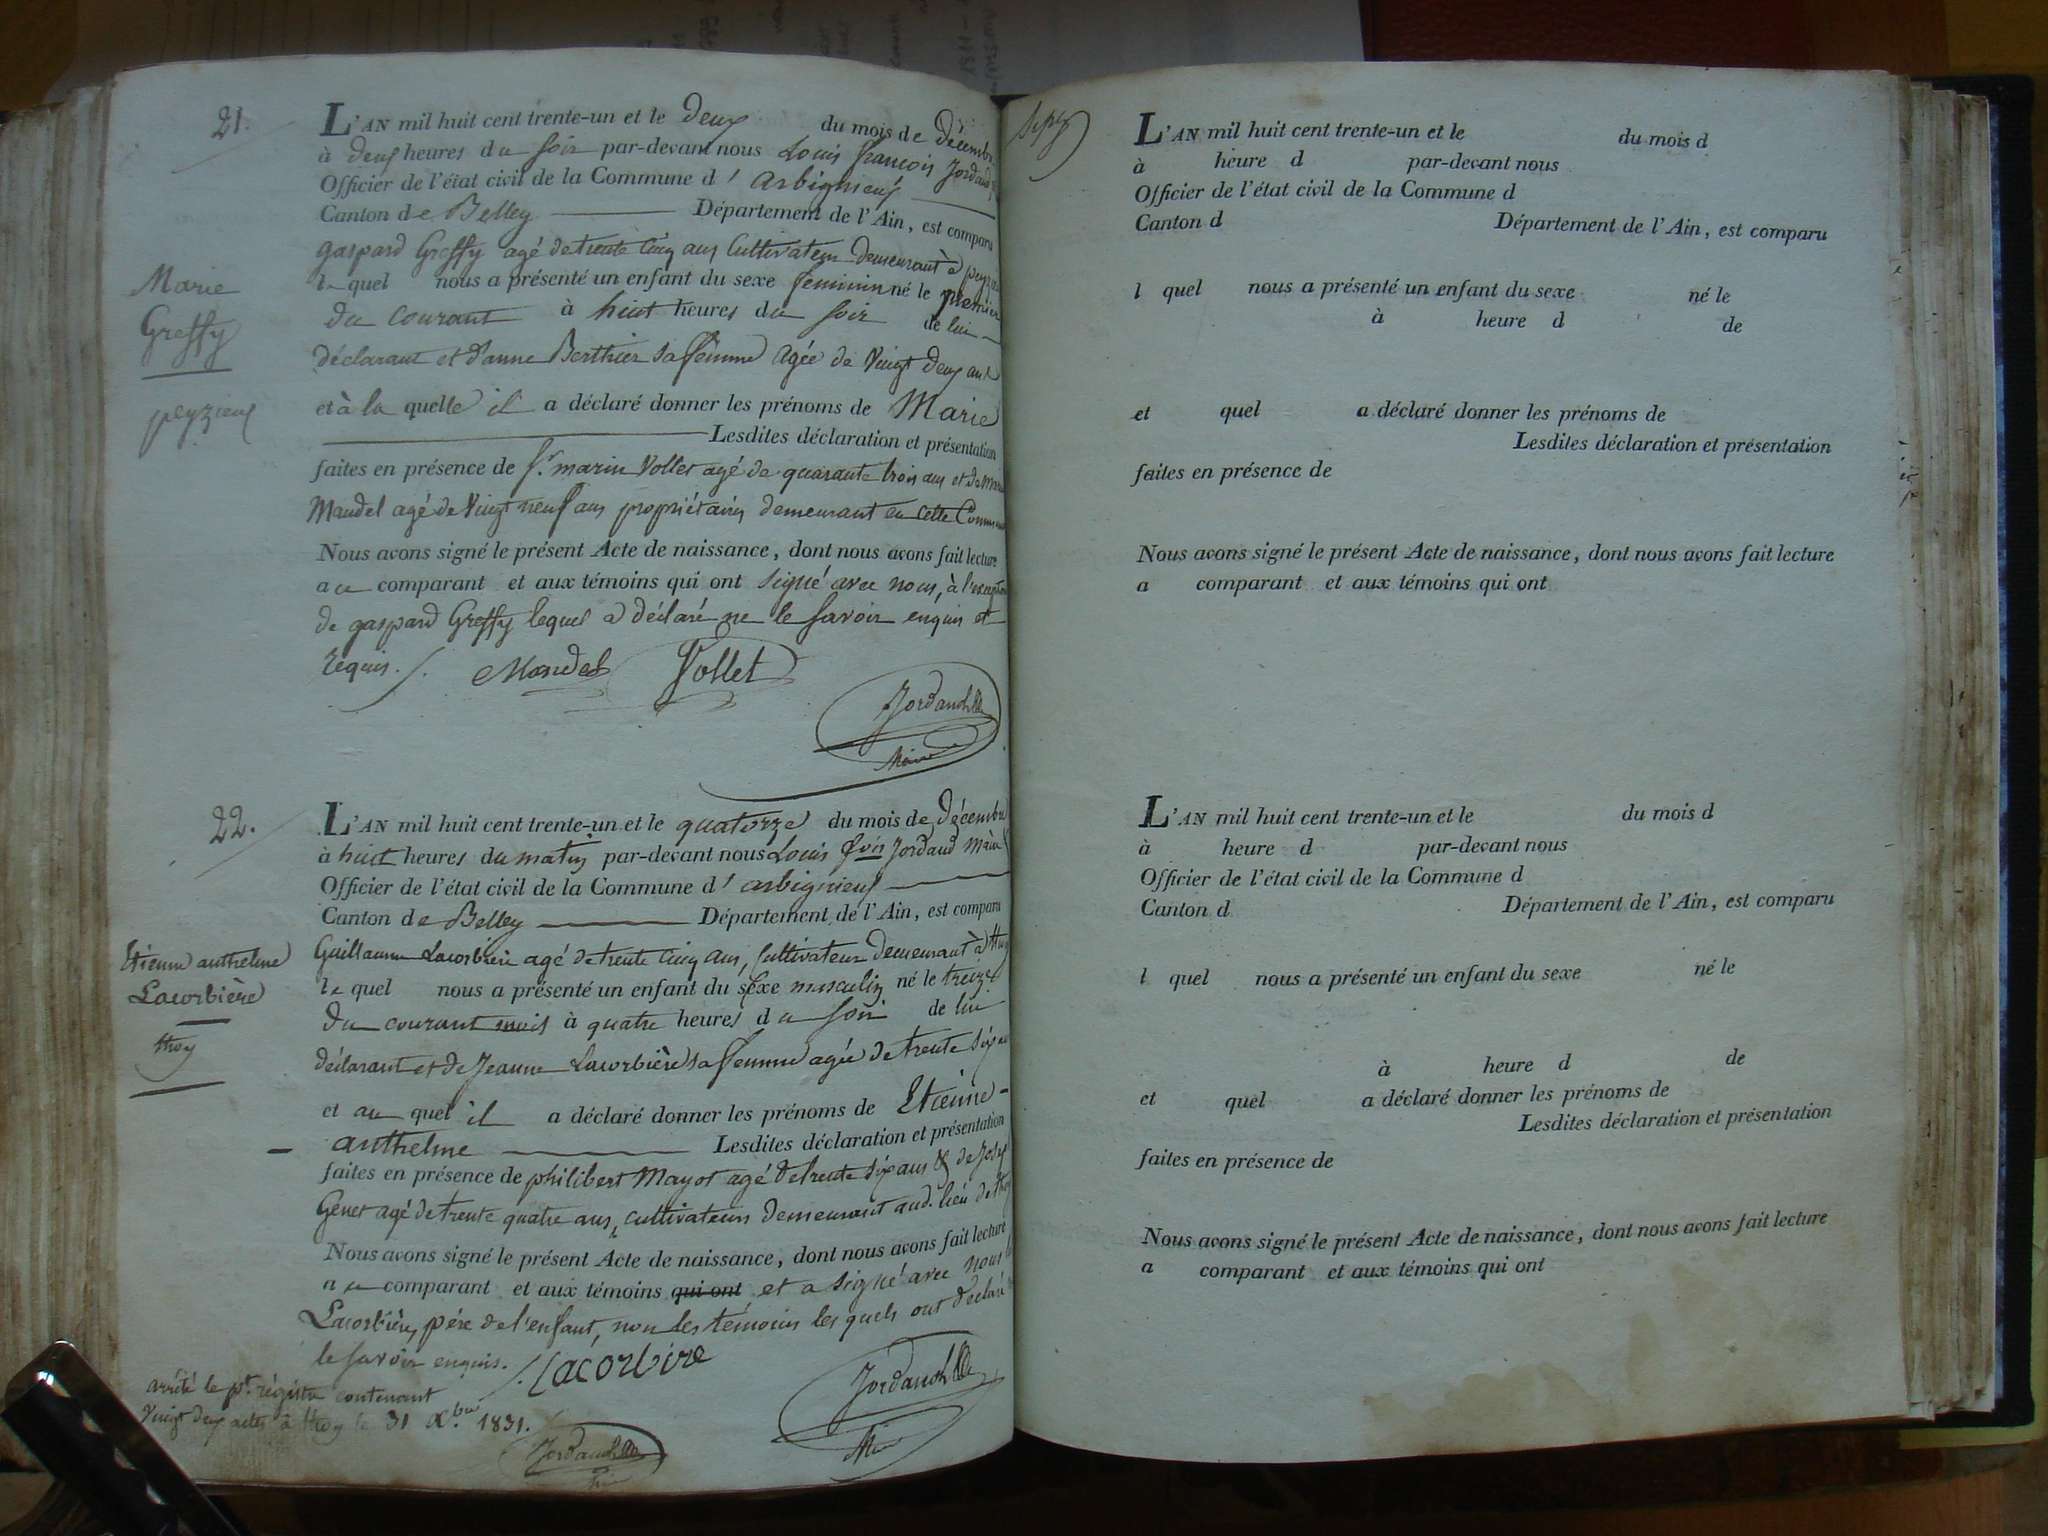 21.
L'AN mil huit cent trente-un et le deux du mois de décembre
à deux heures du soir par-devant nous Louis françois Jordand
Officier de l'état civil de la Commune d' Arbignieux
Canton de Belley Département de l'Ain, est comparu
gaspard Greffy agé de trente Cinq ans Cultivateur demeurant à
Marie
Greffy
peyzieux
le quel nous a présenté un enfant du sexe feminin né le premier
du courant à huit heures du soir de lui
déclarant et d'anne Berthier sa femme agée de Vingt deux ans
et à la quelle il a déclaré donner les prénoms de Marie
Lesdites déclaration et présentation
faites en présence de marin Vollet agé de quarante trois ans et de
Mandel agé de Vingt neuf ans propriétaires demeurant en cette Commune
Nous avons signé le présent Acte de naissance, dont nous avons fait lecture
au comparant et aux témoins qui ont signé avec nous, à l'exception
de gaspard Greffy lequel a déclaré ne le savoir enquis et
requis.
Mandel Vollet
Jordand
Maire
22.
L'AN mil huit cent trente-un et le quatorze du mois de Décembre
à huit heures du matin par-devant nous Louis fçois Jordand Maire
Officier de l'état civil de la Commune d' arbignieux
Canton de Belley Département de l'Ain, est comparu
Guillaume Lacorbière agé de trente Cinq ans, Cultivateur demeurant à thoy
Etienne anthelme
Lacorbière
thoy
le quel nous a présenté un enfant du sexe masculin né le treize
du courant mois à quatre heures du soir de lui
déclarant et de Jeanne Lacorbière sa femme agée de trente six ans
et au quel il a déclaré donner les prénoms de Etienne
anthelme Lesdites déclaration et présentation
faites en présence de philibert Mayot agé de trente six ans & de
Genet agé de trente quatre ans, cultivateurs demeurant aud. lieu de thoy
Nous avons signé le présent Acte de naissance, dont nous avons fait lecture
au comparant et aux témoins qui ont et a signé avec nous
Lacorbière, père de l'enfant, non les témoins les quels ont déclaré
le savoir enquis.
Lacorbire
Jordand
arrêté le pt. régistre contenant
Vingt deux actes à thoy le 31 Xbre 1831.
Jordand
L'AN mil huit cent trente-un et le du mois d
à heure d par-devant nous
Officier de l'état civil de la Commune d
Canton d Département de l'Ain, est comparu
l quel nous a présenté un enfant du sexe né le
à heure d de
et quel a déclaré donner les prénoms de
Lesdites déclaration et présentation
faites en présence de
Nous avons signé le présent Acte de naissance, dont nous avons fait lecture
a comparant et aux témoins qui ont
L'AN mil huit cent trente-un et le du mois d
à heure d par-devant nous
Officier de l'état civil de la Commune d
Canton d Département de l'Ain, est comparu
l quel nous a présenté un enfant du sexe né le
à heure d de
et quel a déclaré donner les prénoms de
Lesdites déclaration et présentation
faites en présence de
Nous avons signé le présent Acte de naissance, dont nous avons fait lecture
a comparant et aux témoins qui ont